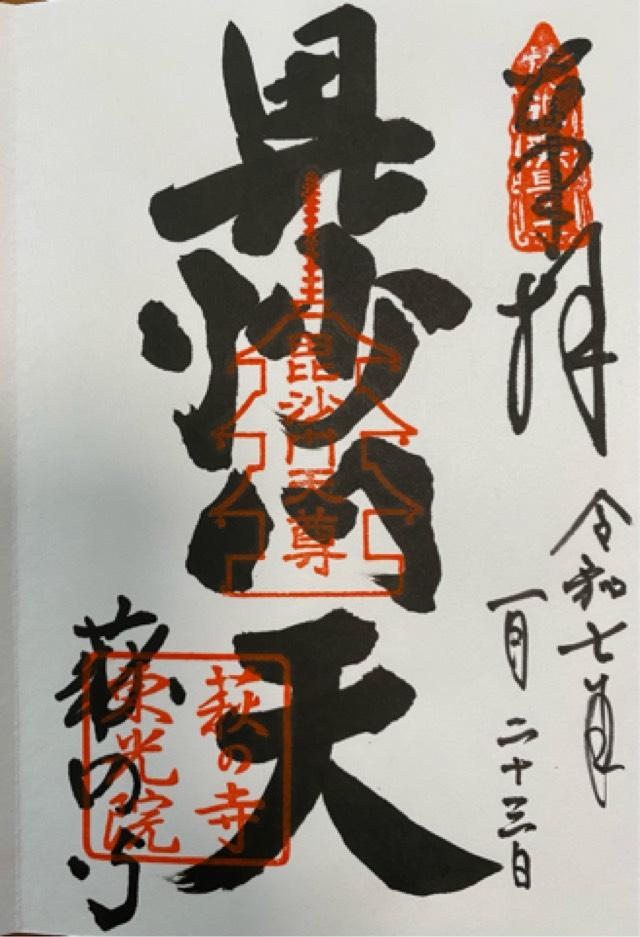 奉拝
令和七年
一月二十三日
毘沙門天
毘沙門天尊
萩の寺
萩の寺
東光院